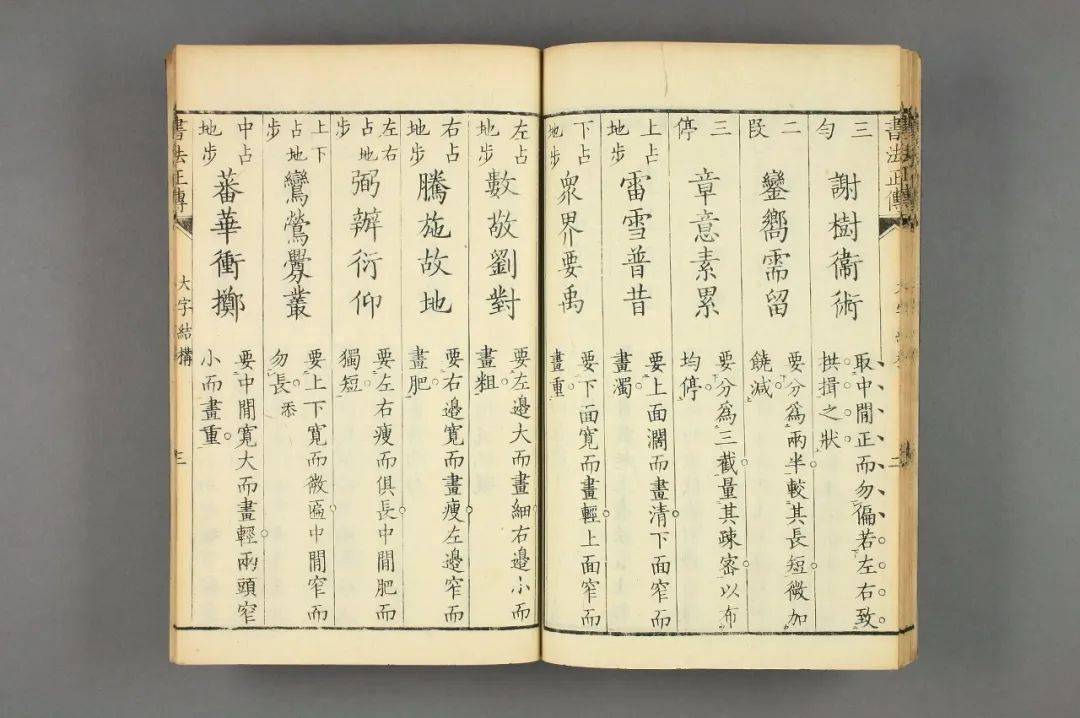 書法正傳
二
三勻
謝樹衞術
取中閒正而勿偏若左右致
拱揖之狀
二段
鑾嚮需留
要分爲兩半較其長短微加
饒減
三停
章意素累
要分爲三截量其疎密以布
均停
上占地步
雷雪普昔
要上面濶而畫清下面窄而
畫濁
下占地步
衆界要禹
要下面寬而畫輕上面窄而
畫重
左占地步
數敬劉對
要左邊大而畫細右邊小而
畫粗
右占地步
騰施故地
要右邊寬而畫瘦左邊窄而
畫肥
左右占地步
弼辦衍仰
要左右瘦而俱長中閒肥而
獨短
上下占地步
鸞鶯釁叢
要上下寬而微匾中閒窄而
勿長
中占地步
蕃華衝擲
要中閒寬大而畫輕兩頭窄
小而畫重
書法正傳
大字結構